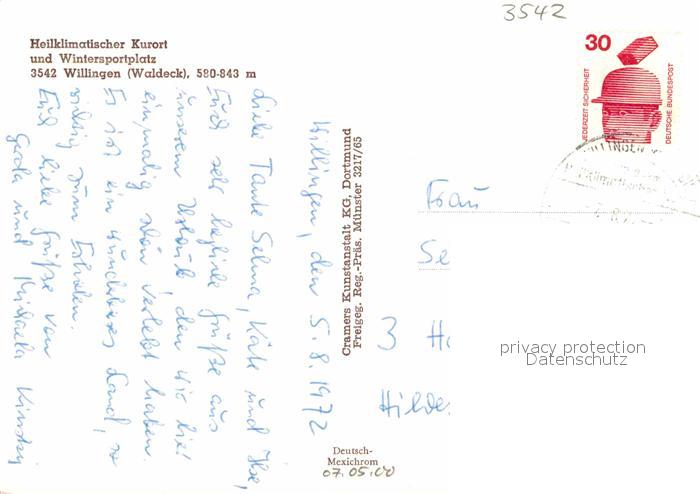 3542
Heilklimatischer Kurort
und Wintersportplatz
3542 Willingen (Waldeck), 580-843 m
Willingen, den 5.8.1972
Liebe Tante Selma, Käte und Ilse,
Euch sehr herzliche Grüße aus
unserem Urlaub, den wir hier
einmalig schön verlebt haben.
Es ist ein wunderbares Land, so
richtig zum Erholen.
Euch liebe Grüße von
Gerda und Michaela
Cramers Kunstanstalt KG, Dortmund
Freigeg. Reg.-Präs. Münster 3217/65
30
JEDERZEIT SICHERHEIT
DEUTSCHE BUNDESPOST
Frau
Se
3 H
Hilde
privacy protection
Datenschutz
Deutsch-
Mexichrom
07.05.00